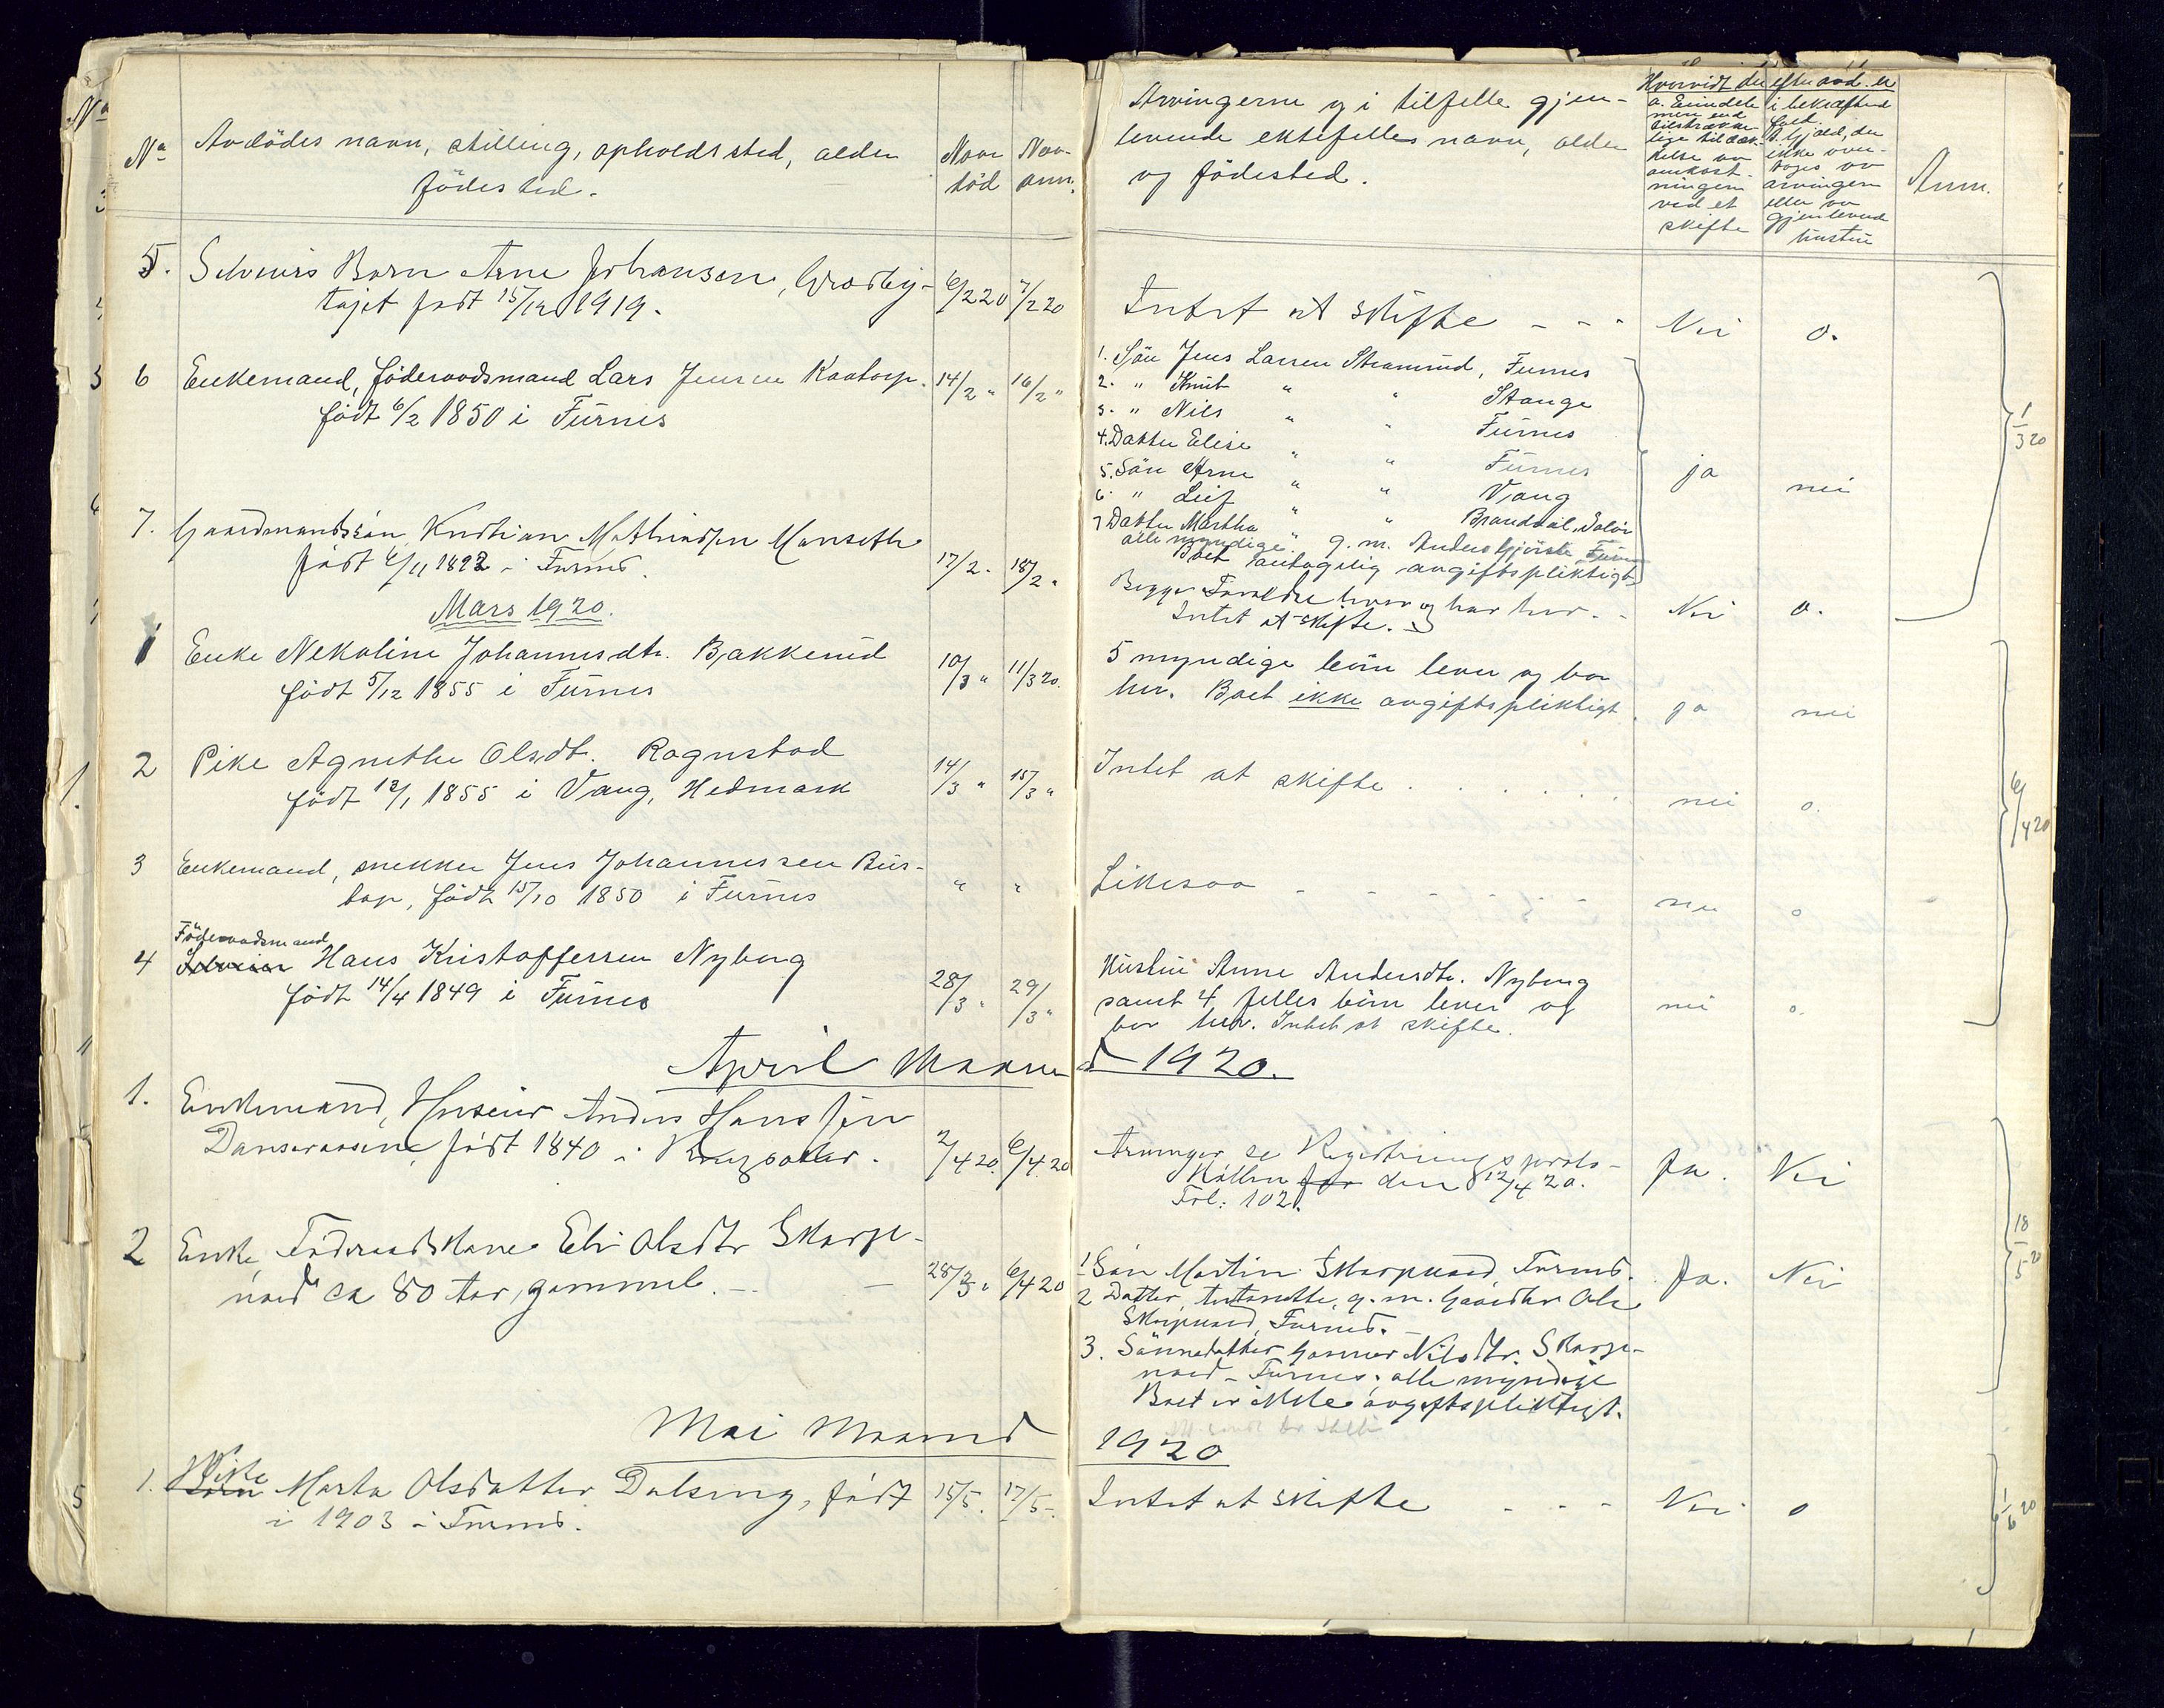 No
Avdödes navn, stilling, opholdssted, alder
födested.
Naar död
Naar anm.
Arvingerne og i tilfelle gjen-
levende ektefelles navn, alder
og födested.
Hvorvidt der efter avd. er
a. Eiendele i bekræftende
mere end fald
tilstrække- b. Gjæld, der
lige til dæk- ikke over-
kelse av tages av
omkost- arvingerne
ningerne eller av
ved et gjenlevende
skifte hustru
Anm.
5. Selveiers Barn Arne Johansen,
född 15/12 1919. 6/2 20 7/2 20
Intet at skifte - - - Nei 0.
6 Enkemand, föderaadsmand Lars Jensen Kaatorp.
född 6/2 1850 i Furnes 14/2 " 16/2 "
1. Sön Jens Larsen Stramrud, Furnes
2. " Knut " " Stange
3. " Nils " " Furnes
4. Datter Elise " " Furnes
5. Sön Arne " " Vang
6. " Leif " " Brandval, Solör
7 Datter Martha g. m. Anders Furnes
alle myndige.
Boet antagelig avgiftspliktigt
ja nei
1/3 20
7. Gaardmandssön, Kristian Mathiassen
född 6/11 1892 i Furnes. 17/2. 18/2.
Begge Foreldre lever og bor her. -
Intet at skifte. Nei 0.
Mars 1920.
1 Enke Nekoline Johannesdtr. Bakkerud
född 5/12 1855 i Furnes 10/3 " 11/3 20.
5 myndige börn lever og bor
her. Boet ikke avgiftspliktigt. ja nei
2 Pike Agnethe Olsdt. Rognstad
född 12/1 1855 i Vang, Hedmark 14/3 " 15/3 "
Intet at skifte . . . . . . nei 0.
6/4 20
3 Enkemand, snekker Jens Johannessen Bus-
top, född 15/10 1850 i Furnes " "
Likesaa - - - - - - nei 0
Föderaadsmand
4 Selveier Hans Kristoffersen Nyborg
född 14/4 1849 i Furnes 28/3 " 29/3 "
Hustru Anne Andersdtr. Nyborg
samt 4 felles börn lever og
bor her. Intet at skifte. nei 0.
April Maaned 1920.
1. Enkemand, Huseier Anders Hanssen
född 1840 i Ringsaker. 2/4 20. 6/4 20
Arvinger se Registreringsproto-
kollen for den 12/4 20.
Fol: 102. Ja. Nei
2 Enke, Föderaadskone Eli Olsdtr Skarpe-
noed ca 80 Aar gammel. - 28/3 " 6/4 20
1 Sön Martin Skarpnoed, Furnes.
2 Datter, Antonette, g. m. Gaardbr Ole
Skarpnoed, Furnes.
3. Sönnedatter Gunnor Nilsdtr. Skarpe-
noed - Furnes; alle myndige
Boet er ikke avgiftspliktigt.
Ja. Nei
18/5 20
Mai Maaned 1920
1. Pike Barn Marta Olsdatter Dalseng, född
i 1903 i Furnes. 15/5. 17/5.
Intet at skifte - - - Nei 0
1/6 20